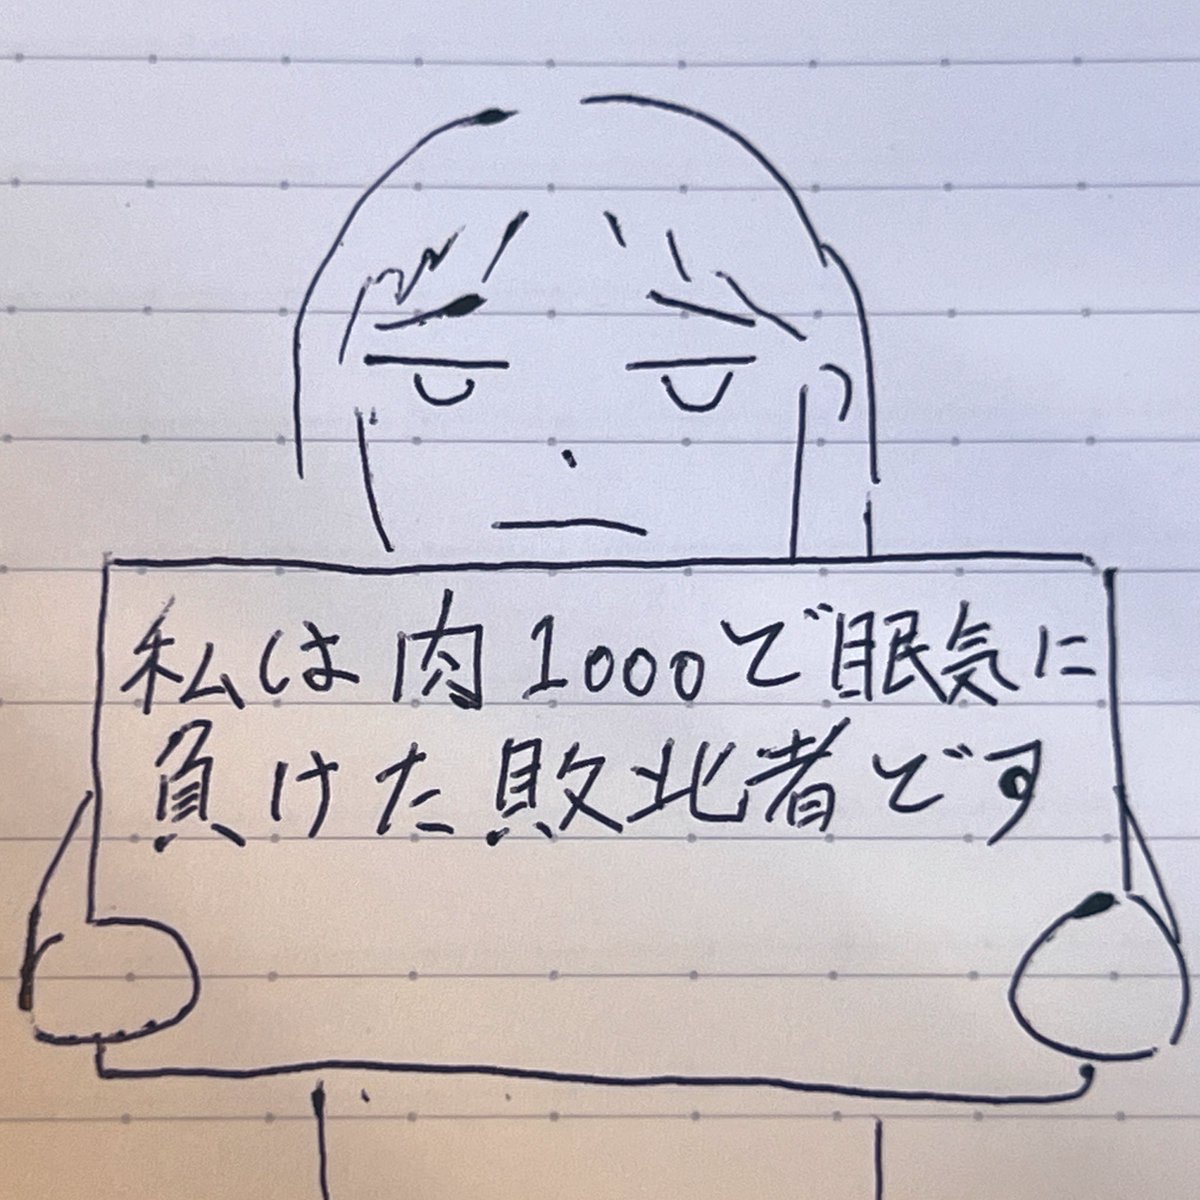 私は肉1000で眠気に
負けた敗北者です